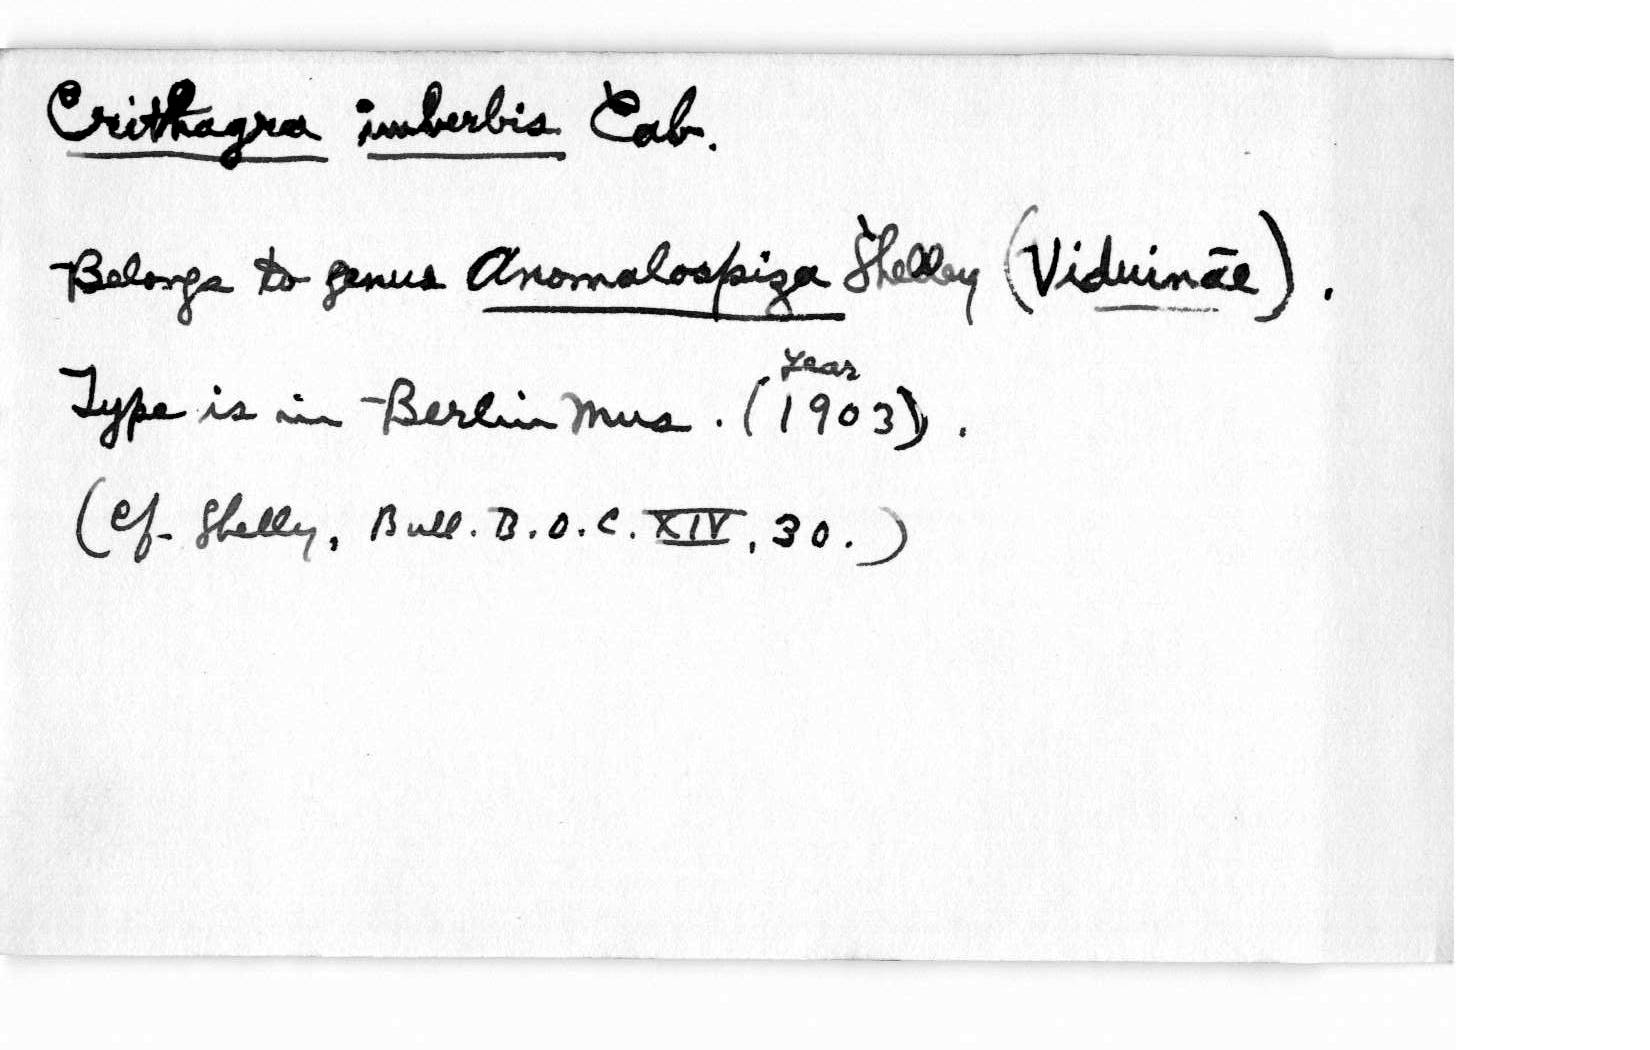 Crithagra imberbis Cab.
Belongs to genus Anomalospiza Shelley (Viduināe).
year
Type is in Berlin Mus. (1903).
(Cf. Shelly, Bull. B.O.C. XIV, 30.)